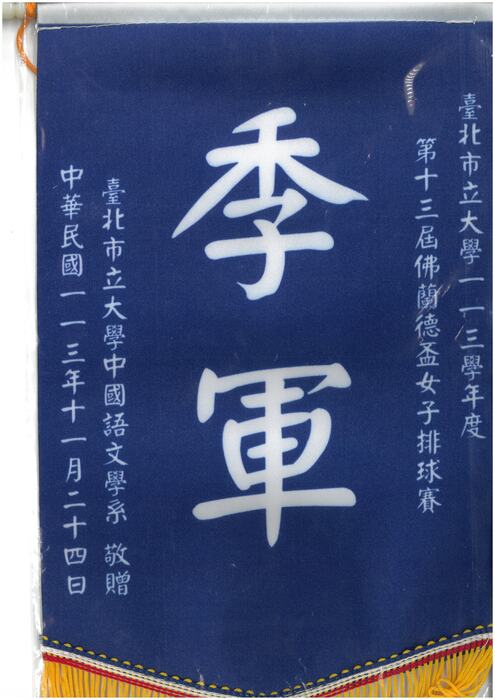 臺北市立大學一一三學年度
第十三屆佛蘭德盃女子排球賽
季軍
臺北市立大學中國語文學系 敬贈
中華民國一一三年十一月二十四日